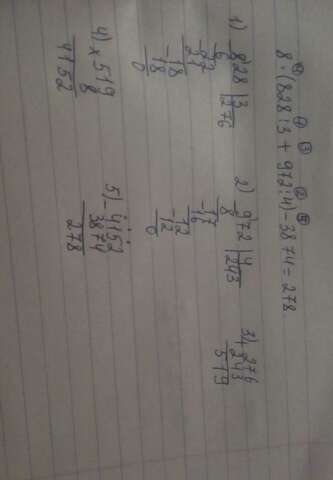 ④ ① ③ ② ⑤
8·(828:3 + 972:4) - 3874 = 278.
1) 828 | 3
6 | 276
-22
21
-18
18
0
2) 972 | 4
8 | 243
-17
16
-12
12
0
3) + 276
243
519
4) × 519
8
4152
5) - 4152
3874
278